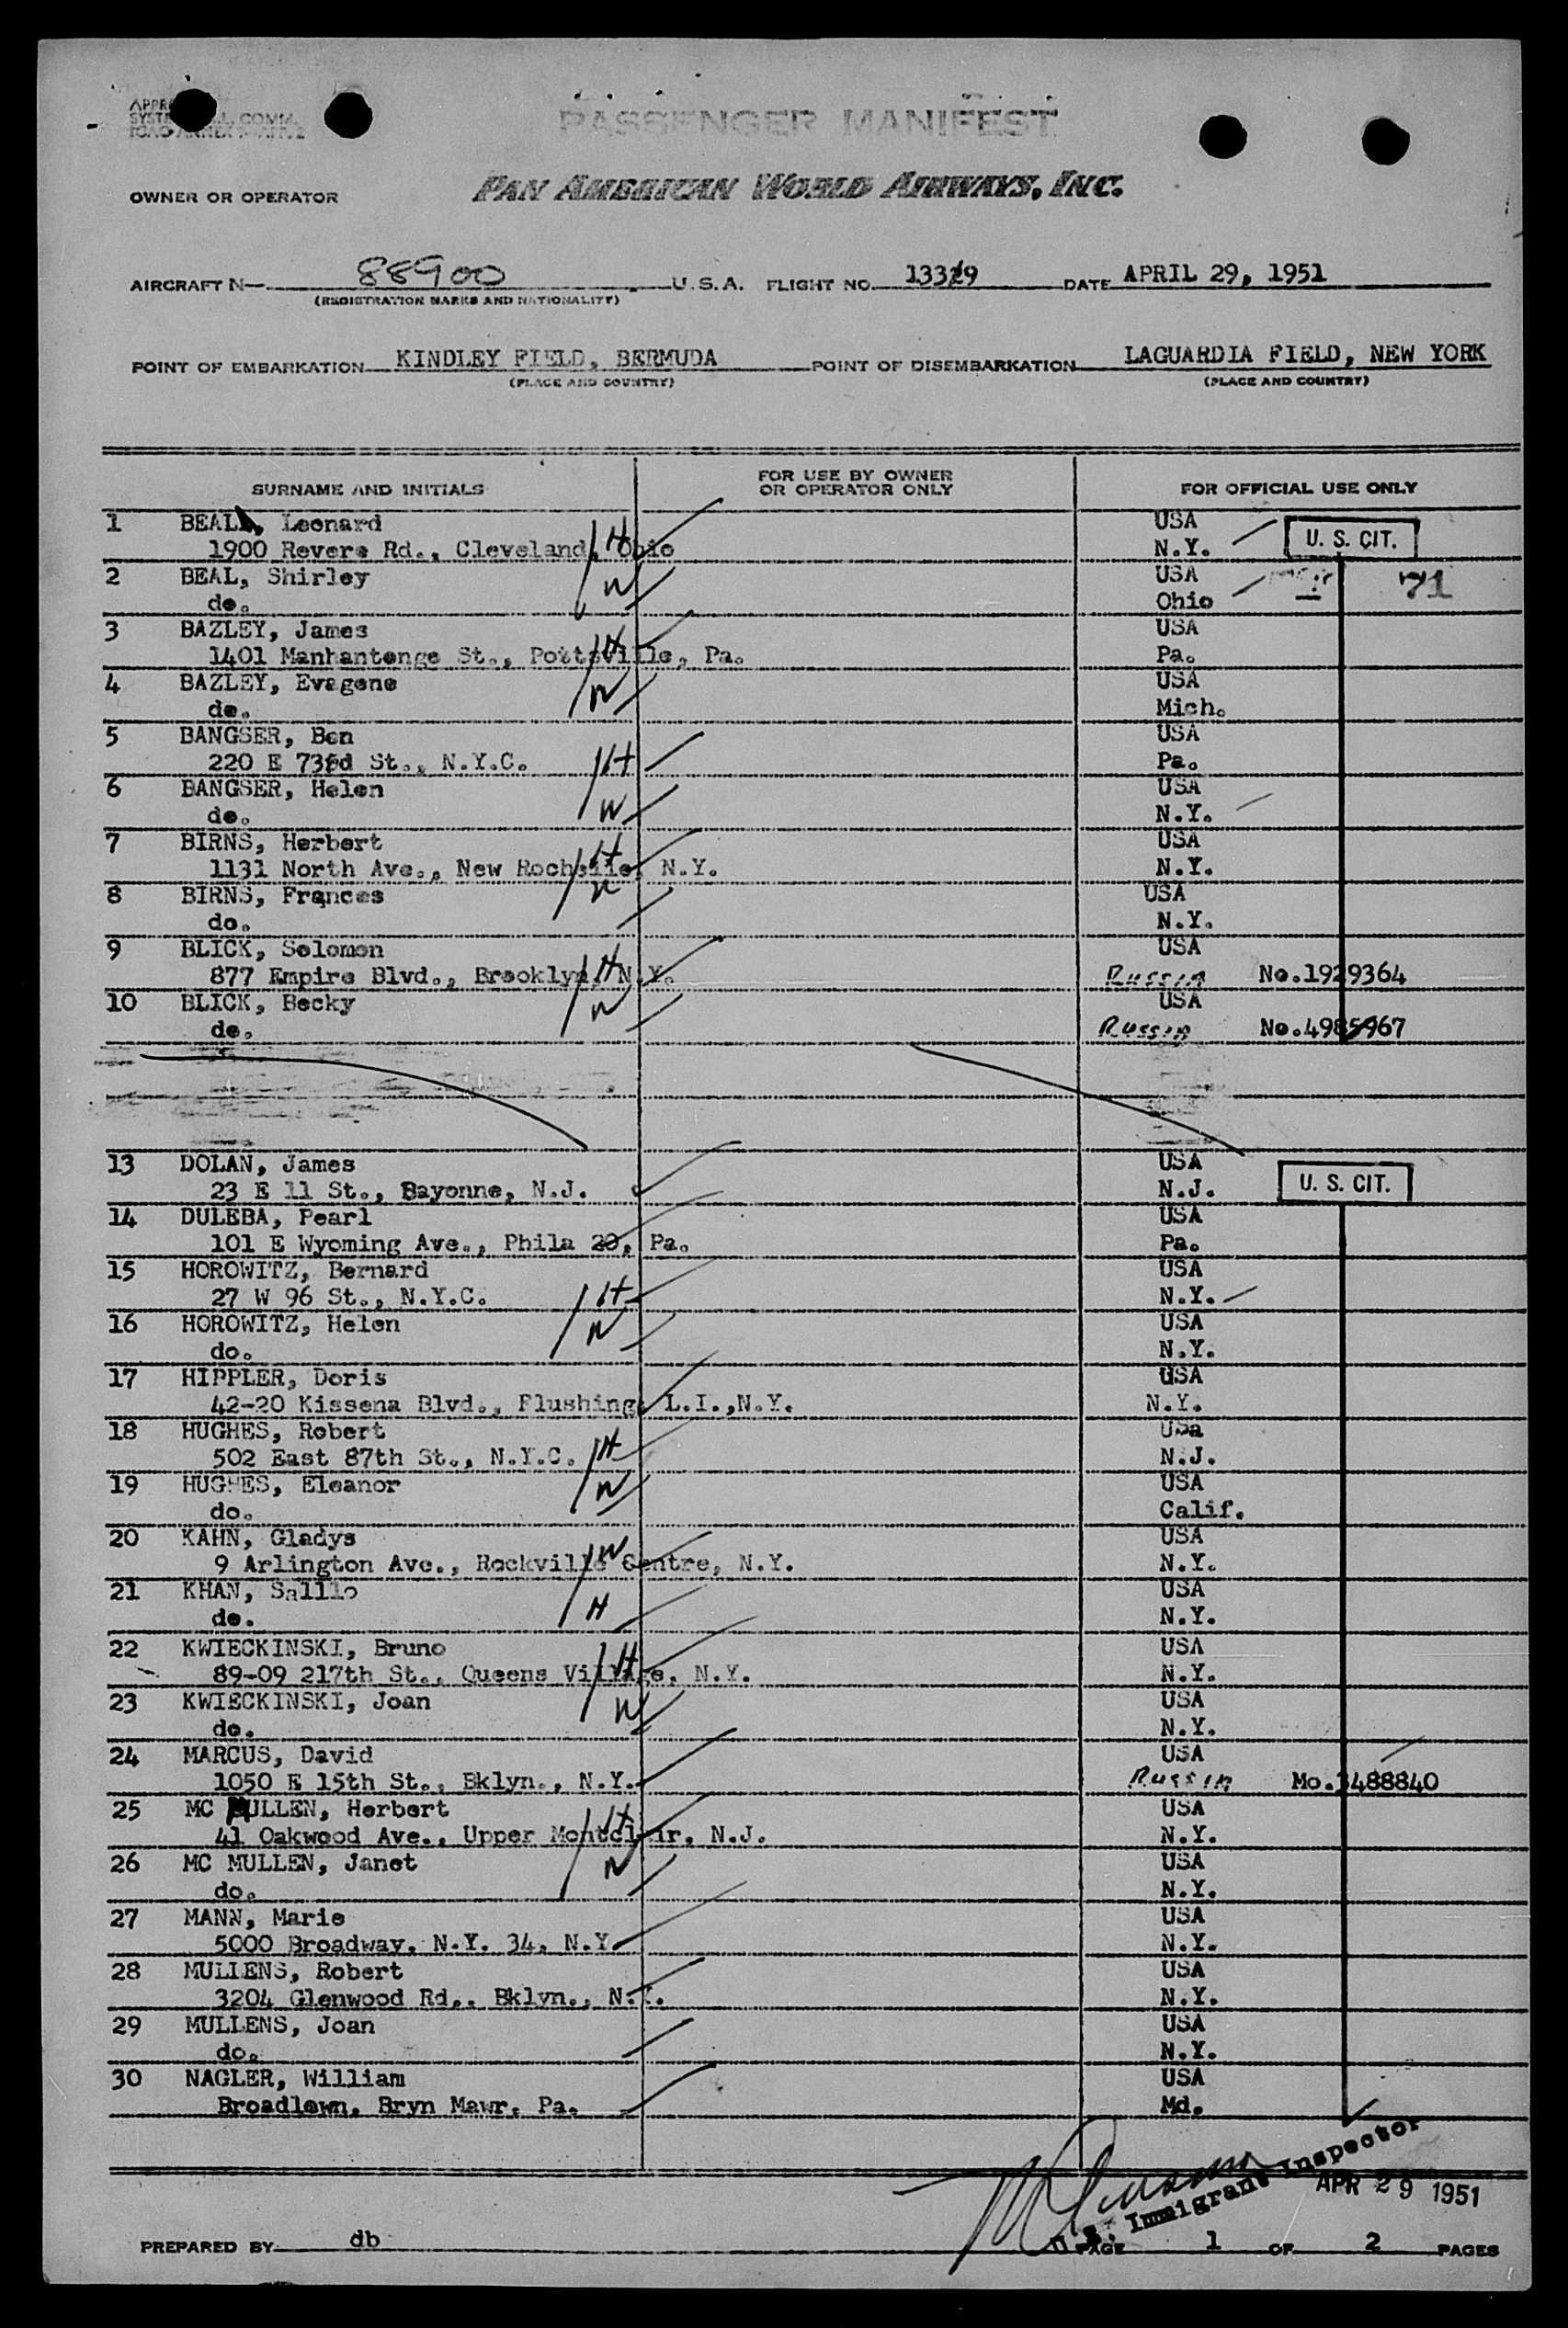 PASSENGER MANIFEST
OWNER OR OPERATOR PAN AMERICAN WORLD AIRWAYS, INC.
AIRCRAFT N— 88900 U.S.A. FLIGHT NO. 13329 DATE APRIL 29, 1951
(REGISTRATION MARKS AND NATIONALITY)
POINT OF EMBARKATION KINDLEY FIELD, BERMUDA POINT OF DISEMBARKATION LAGUARDIA FIELD, NEW YORK
(PLACE AND COUNTRY) (PLACE AND COUNTRY)
SURNAME AND INITIALS FOR USE BY OWNER OR OPERATOR ONLY FOR OFFICIAL USE ONLY
1 BEAL, Leonard USA
1900 Revere Rd., Cleveland, Ohio H N.Y. U. S. CIT.
2 BEAL, Shirley USA
do. W Ohio 71
3 BAZLEY, James USA
1401 Manhantenge St., Pottsville, Pa. H Pa.
4 BAZLEY, Evagene USA
do. W Mich.
5 BANGSER, Ben USA
220 E 73rd St., N.Y.C. H Pa.
6 BANGSER, Helen USA
do. W N.Y.
7 BIRNS, Herbert USA
1131 North Ave., New Rochelle, N.Y. H N.Y.
8 BIRNS, Frances USA
do. W N.Y.
9 BLICK, Solomon USA
877 Empire Blvd., Brooklyn, N.Y. H RUSSIA No.1929364
10 BLICK, Becky USA
do. W RUSSIA No.4985967
13 DOLAN, James USA
23 E 11 St., Bayonne, N.J. N.J. U. S. CIT.
14 DULEBA, Pearl USA
101 E Wyoming Ave., Phila 20, Pa. Pa.
15 HOROWITZ, Bernard USA
27 W 96 St., N.Y.C. H N.Y.
16 HOROWITZ, Helen USA
do. W N.Y.
17 HIPPLER, Doris USA
42-20 Kissena Blvd., Flushing, L.I.,N.Y. N.Y.
18 HUGHES, Robert USa
502 East 87th St., N.Y.C. H N.J.
19 HUGHES, Eleanor USA
do. W Calif.
20 KAHN, Gladys USA
9 Arlington Ave., Rockville Centre, N.Y. W N.Y.
21 KHAN, Sallie USA
do. H N.Y.
22 KWIECKINSKI, Bruno USA
89-09 217th St., Queens Village, N.Y. H N.Y.
23 KWIECKINSKI, Joan USA
do. W N.Y.
24 MARCUS, David USA
1050 E 15th St., Bklyn., N.Y. RUSSIA Mo.3488840
25 MC MULLEN, Herbert USA
41 Oakwood Ave., Upper Montclair, N.J. H N.Y.
26 MC MULLEN, Janet USA
do. W N.Y.
27 MANN, Marie USA
5000 Broadway, N.Y. 34, N.Y. N.Y.
28 MULLENS, Robert USA
3204 Glenwood Rd., Bklyn., N.Y. N.Y.
29 MULLENS, Joan USA
do. N.Y.
30 NAGLER, William USA
Broadlawn, Bryn Mawr, Pa. Md.
U.S. Immigrant Inspector
APR 29 1951
PREPARED BY db PAGE 1 OF 2 PAGES